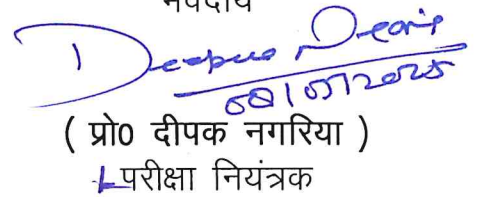 भवदीय
08/05/2025
( प्रो0 दीपक नगरिया )
परीक्षा नियंत्रक